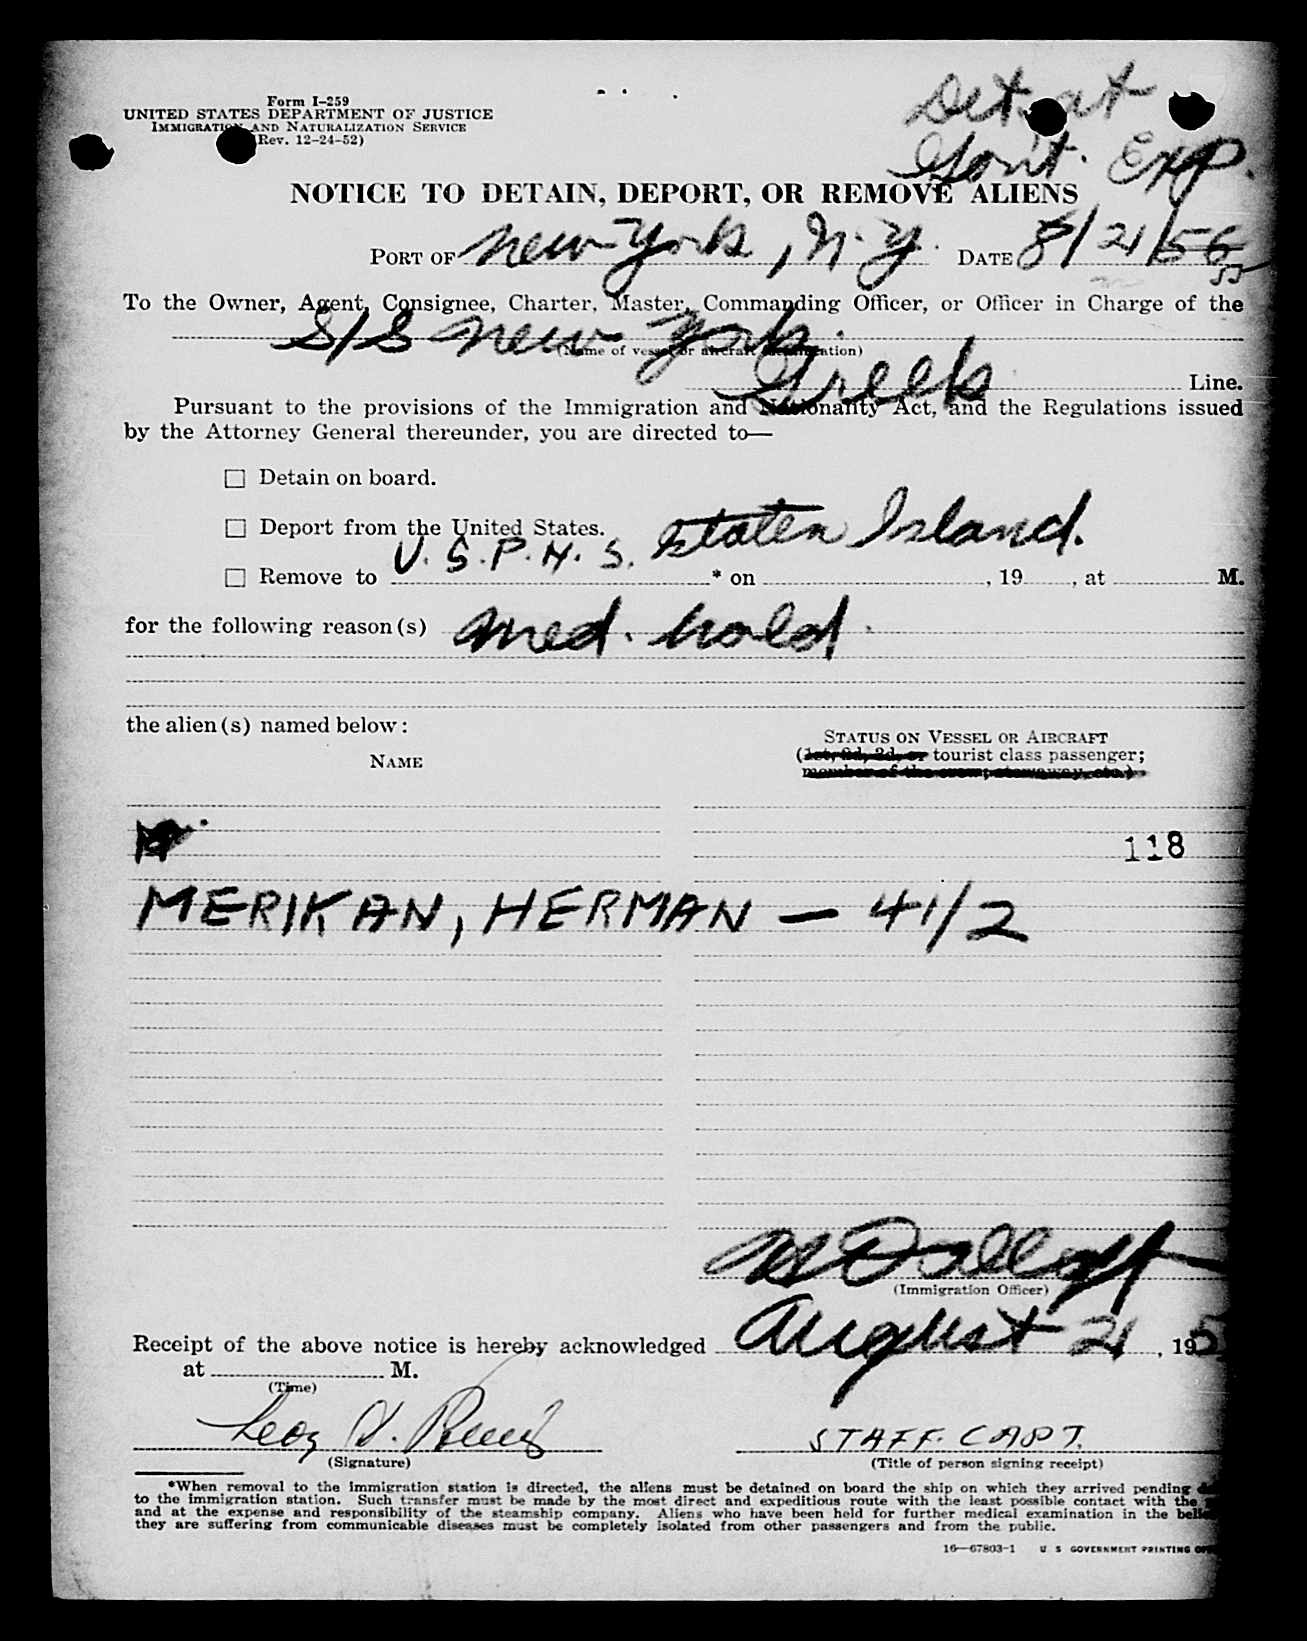 Form I-259
UNITED STATES DEPARTMENT OF JUSTICE
IMMIGRATION AND NATURALIZATION SERVICE
(Rev. 12-24-52)
Det. at
Gov't. Exp.
NOTICE TO DETAIN, DEPORT, OR REMOVE ALIENS
PORT OF New York, N.Y. DATE 8/21/56
55
To the Owner, Agent, Consignee, Charter, Master, Commanding Officer, or Officer in Charge of the
S/S New York
(Name of vessel or aircraft identification)
Greek Line.
Pursuant to the provisions of the Immigration and Nationality Act, and the Regulations issued
by the Attorney General thereunder, you are directed to—
☐ Detain on board.
☐ Deport from the United States.
☐ Remove to U.S.P.H.S. Staten Island. * on , 19 , at M.
for the following reason(s) Med. hold.
the alien(s) named below:
NAME
STATUS ON VESSEL OR AIRCRAFT
(1st, 2d, 3d, or tourist class passenger;
member of the crew; stowaway, etc.)
118
MERIKAN, HERMAN — 41/2
(Immigration Officer)
Receipt of the above notice is hereby acknowledged August 21, 195
at M.
(Time)
STAFF. CAPT.
(Signature)
(Title of person signing receipt)
*When removal to the immigration station is directed, the aliens must be detained on board the ship on which they arrived pending
to the immigration station. Such transfer must be made by the most direct and expeditious route with the least possible contact with the
and at the expense and responsibility of the steamship company. Aliens who have been held for further medical examination in the
they are suffering from communicable diseases must be completely isolated from other passengers and from the public.
16—67803-1 U S GOVERNMENT PRINTING